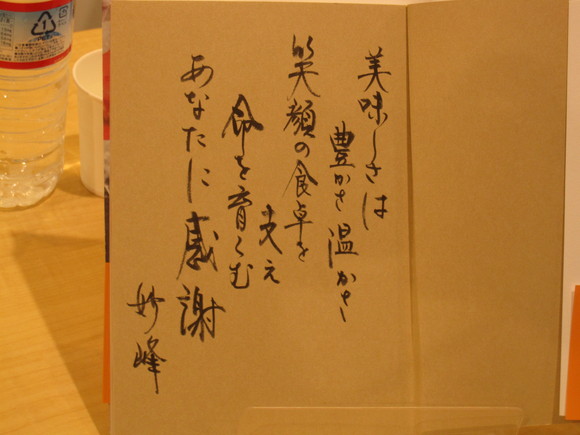 美味しさは
豊かさ温かさ
笑顔の食卓を
支え
命を育くむ
あなたに感謝
妙峰